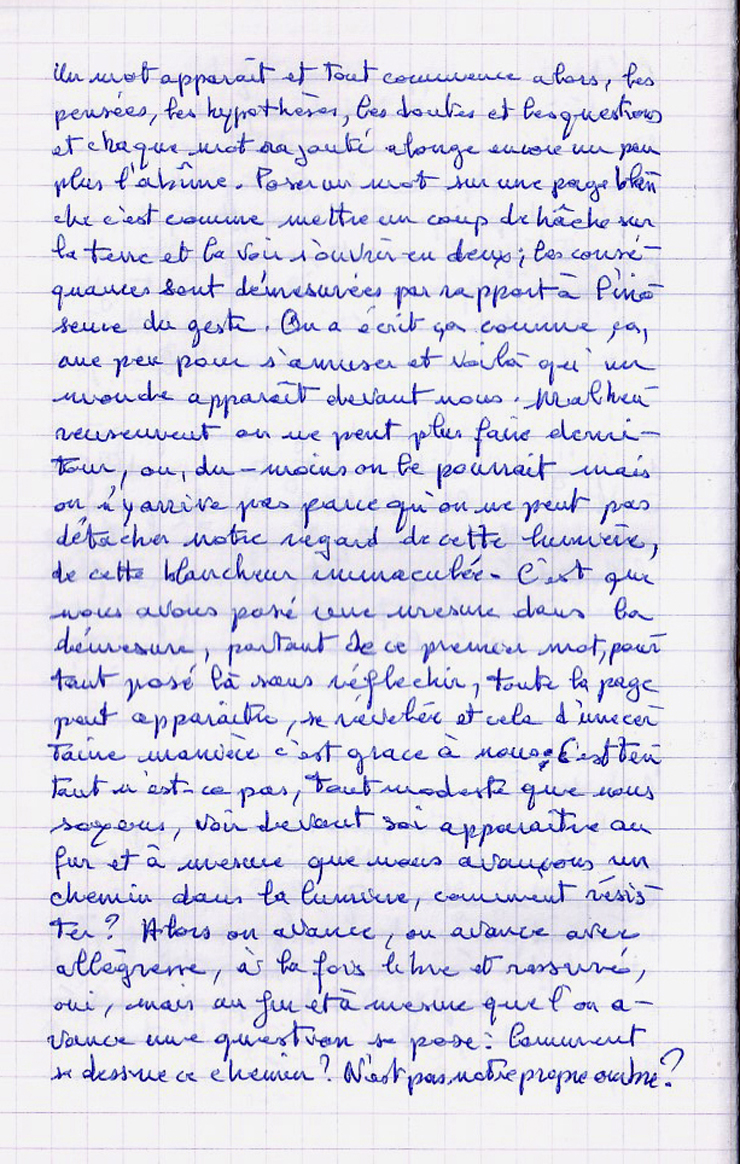 Un mot apparaît et tout commence alors, les
pensées, les hypothèses, les doutes et les questions
et chaque mot rajouté alonge encore un peu
plus l'abîme. Poser un mot sur une page blan
che c'est comme mettre un coup de hâche sur
la terre et la voir s'ouvrir en deux ; les consé-
quances sont démesurées par rapport à l'ino
sence du geste. On a écrit ça comme ça,
une peu pour s'amuser et voilà qu'un
monde apparaît devant nous. Malheu
reusement on ne peut plus faire demi-
tour, ou, du-moins on le pourrait mais
on n'y arrive pas parce qu'on ne peut pas
détacher notre regard de cette lumière,
de cette blancheur immaculée. C'est que
nous avons posé une mesure dans la
démesure, partant de ce premier mot, pour
tant posé là sans réflechir, toute la page
peut apparaître, se révelée et cela d'une cer
taine manière c'est grace à nous. C'est ten
tant n'est-ce pas, tout modeste que nous
soyons, voir devant soi apparaître au
fur et à mesure que nous avançons un
chemin dans la lumière, comment résis
ter ? Alors on avance, on avance avec
allégresse, à la fois libre et rassuré,
oui, mais au fur et à mesure que l'on a-
vance une question se pose : Comment
se dessine ce chemin ? N'est pas notre propre ombre ?